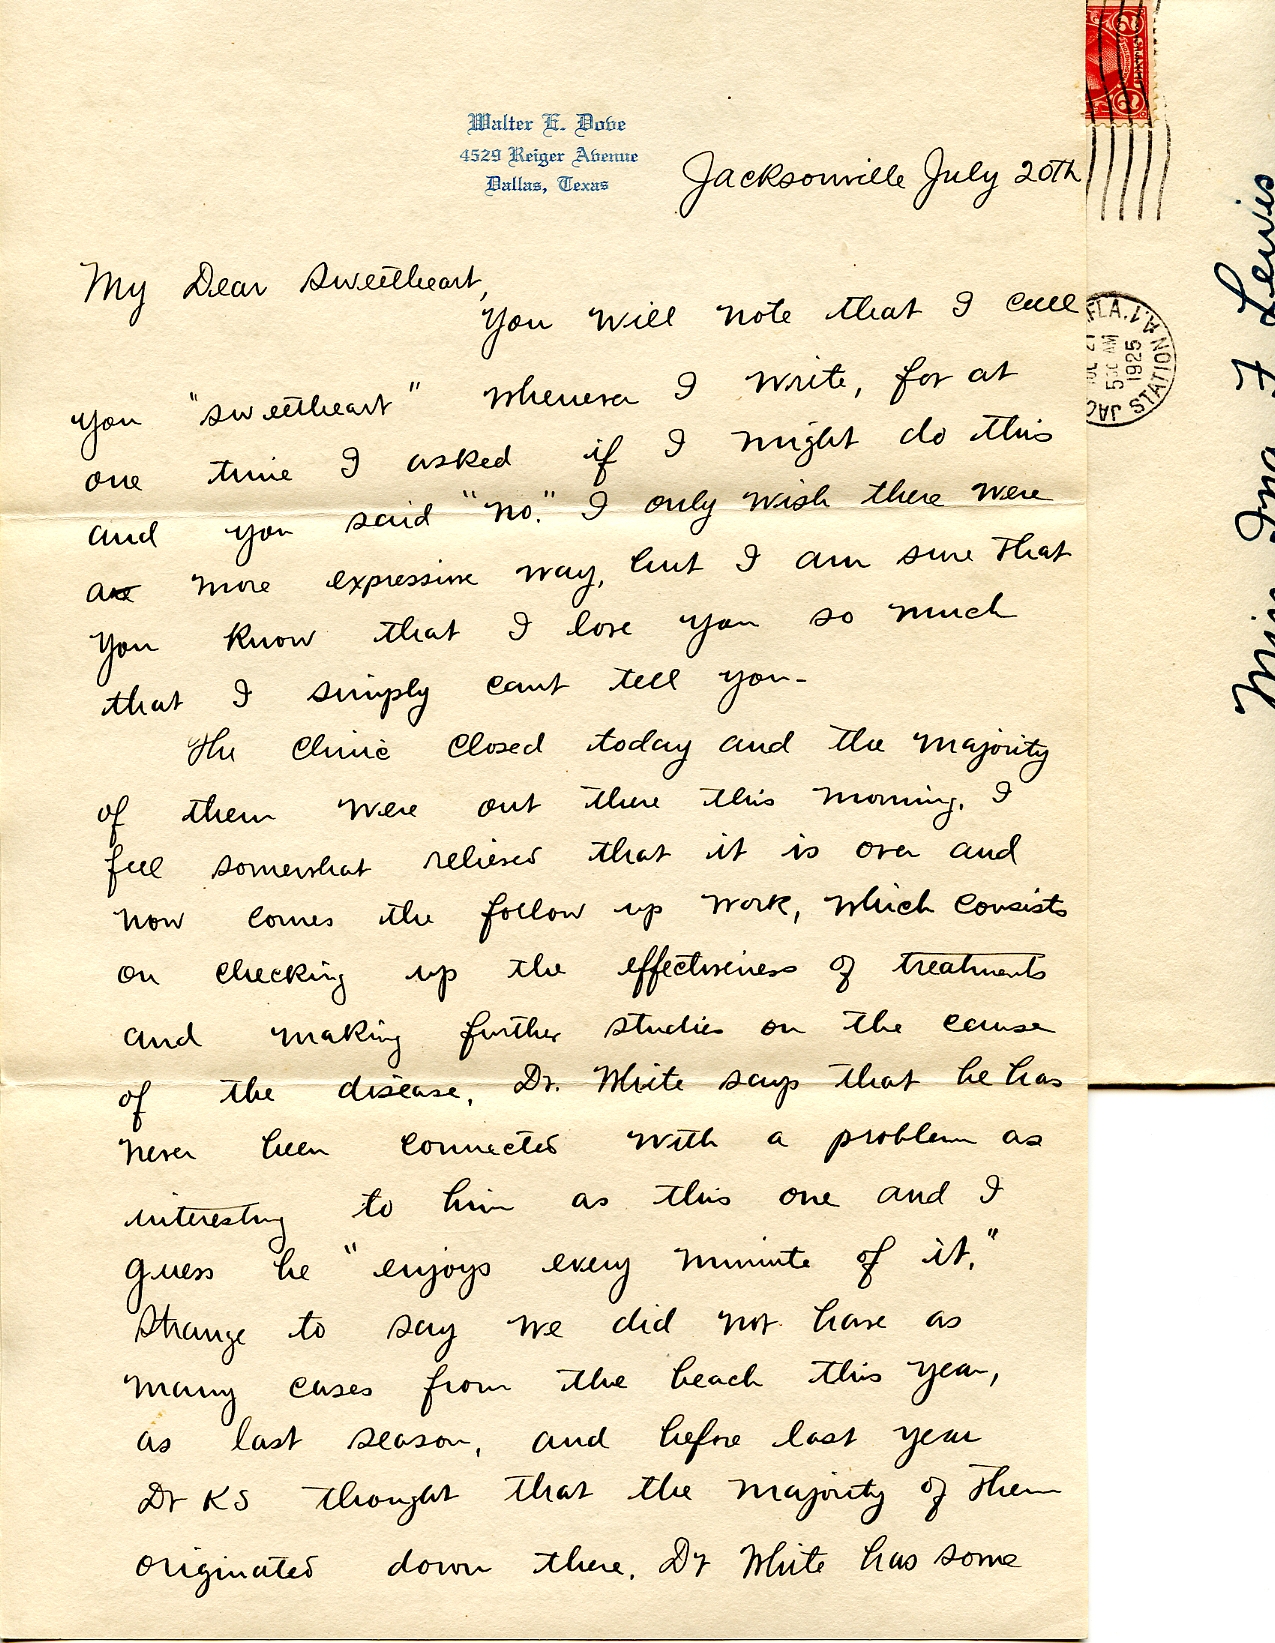 Walter E. Dove
4529 Reiger Avenue
Dallas, Texas
Jacksonville July 20th
My Dear Sweetheart,
You will note that I call
you "sweetheart" whenever I write, for at
one time I asked if I might do this
and you said "no." I only wish there were
are more expressive way, but I am sure that
you know that I love you so much
that I simply cant tell you-
The clinic closed today and the majority
of them were out there this morning. I
feel somewhat relieved that it is over and
now comes the follow up work, which consists
on checking up the effectiveness of treatments
and making further studies on the cause
of the disease. Dr. White says that he has
never been connected with a problem as
interesting to him as this one and I
guess he "enjoys every minute of it."
Strange to say we did not have as
many cases from the beach this year,
as last season, and before last year
Dr KS thought that the majority of them
originated down there. Dr White has some
2 CENTS 2
FLA. STATION A.1
JUL 21
5 AM
1925
JAC
Miss Ina F Lewis